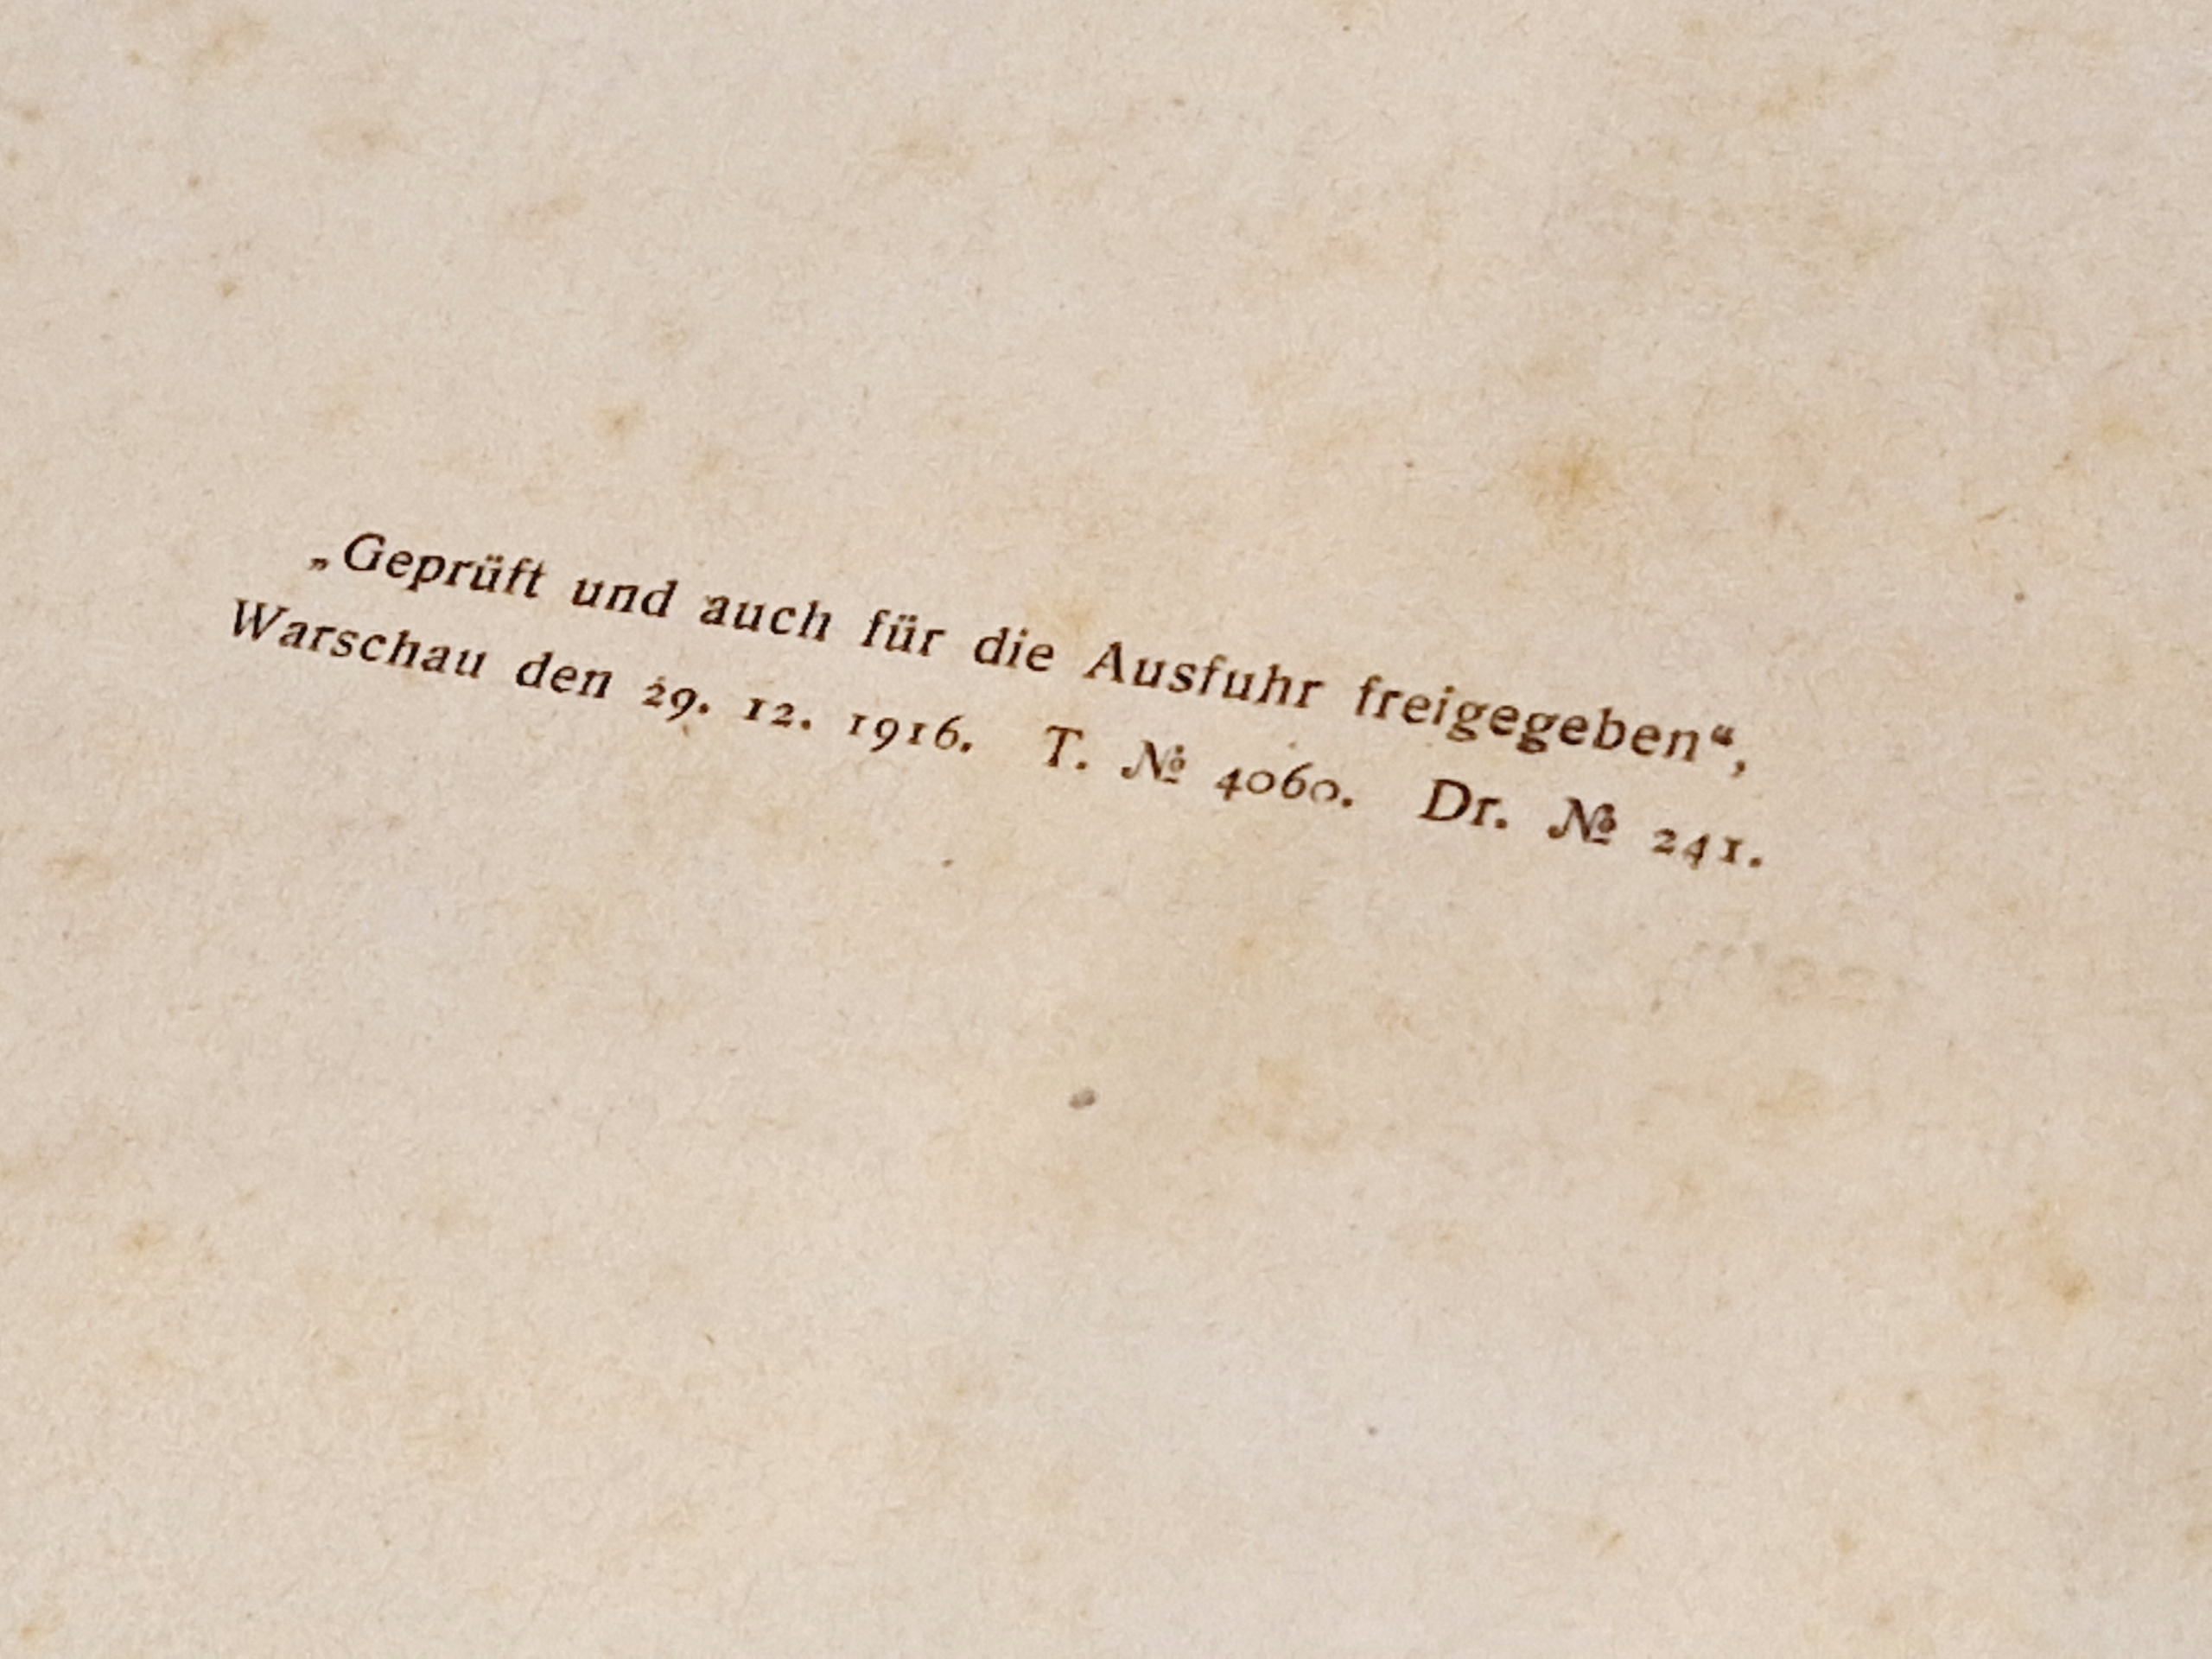 „Geprüft und auch für die Ausfuhr freigegeben“,
Warschau den 29. 12. 1916. T. № 4060. Dr. № 241.